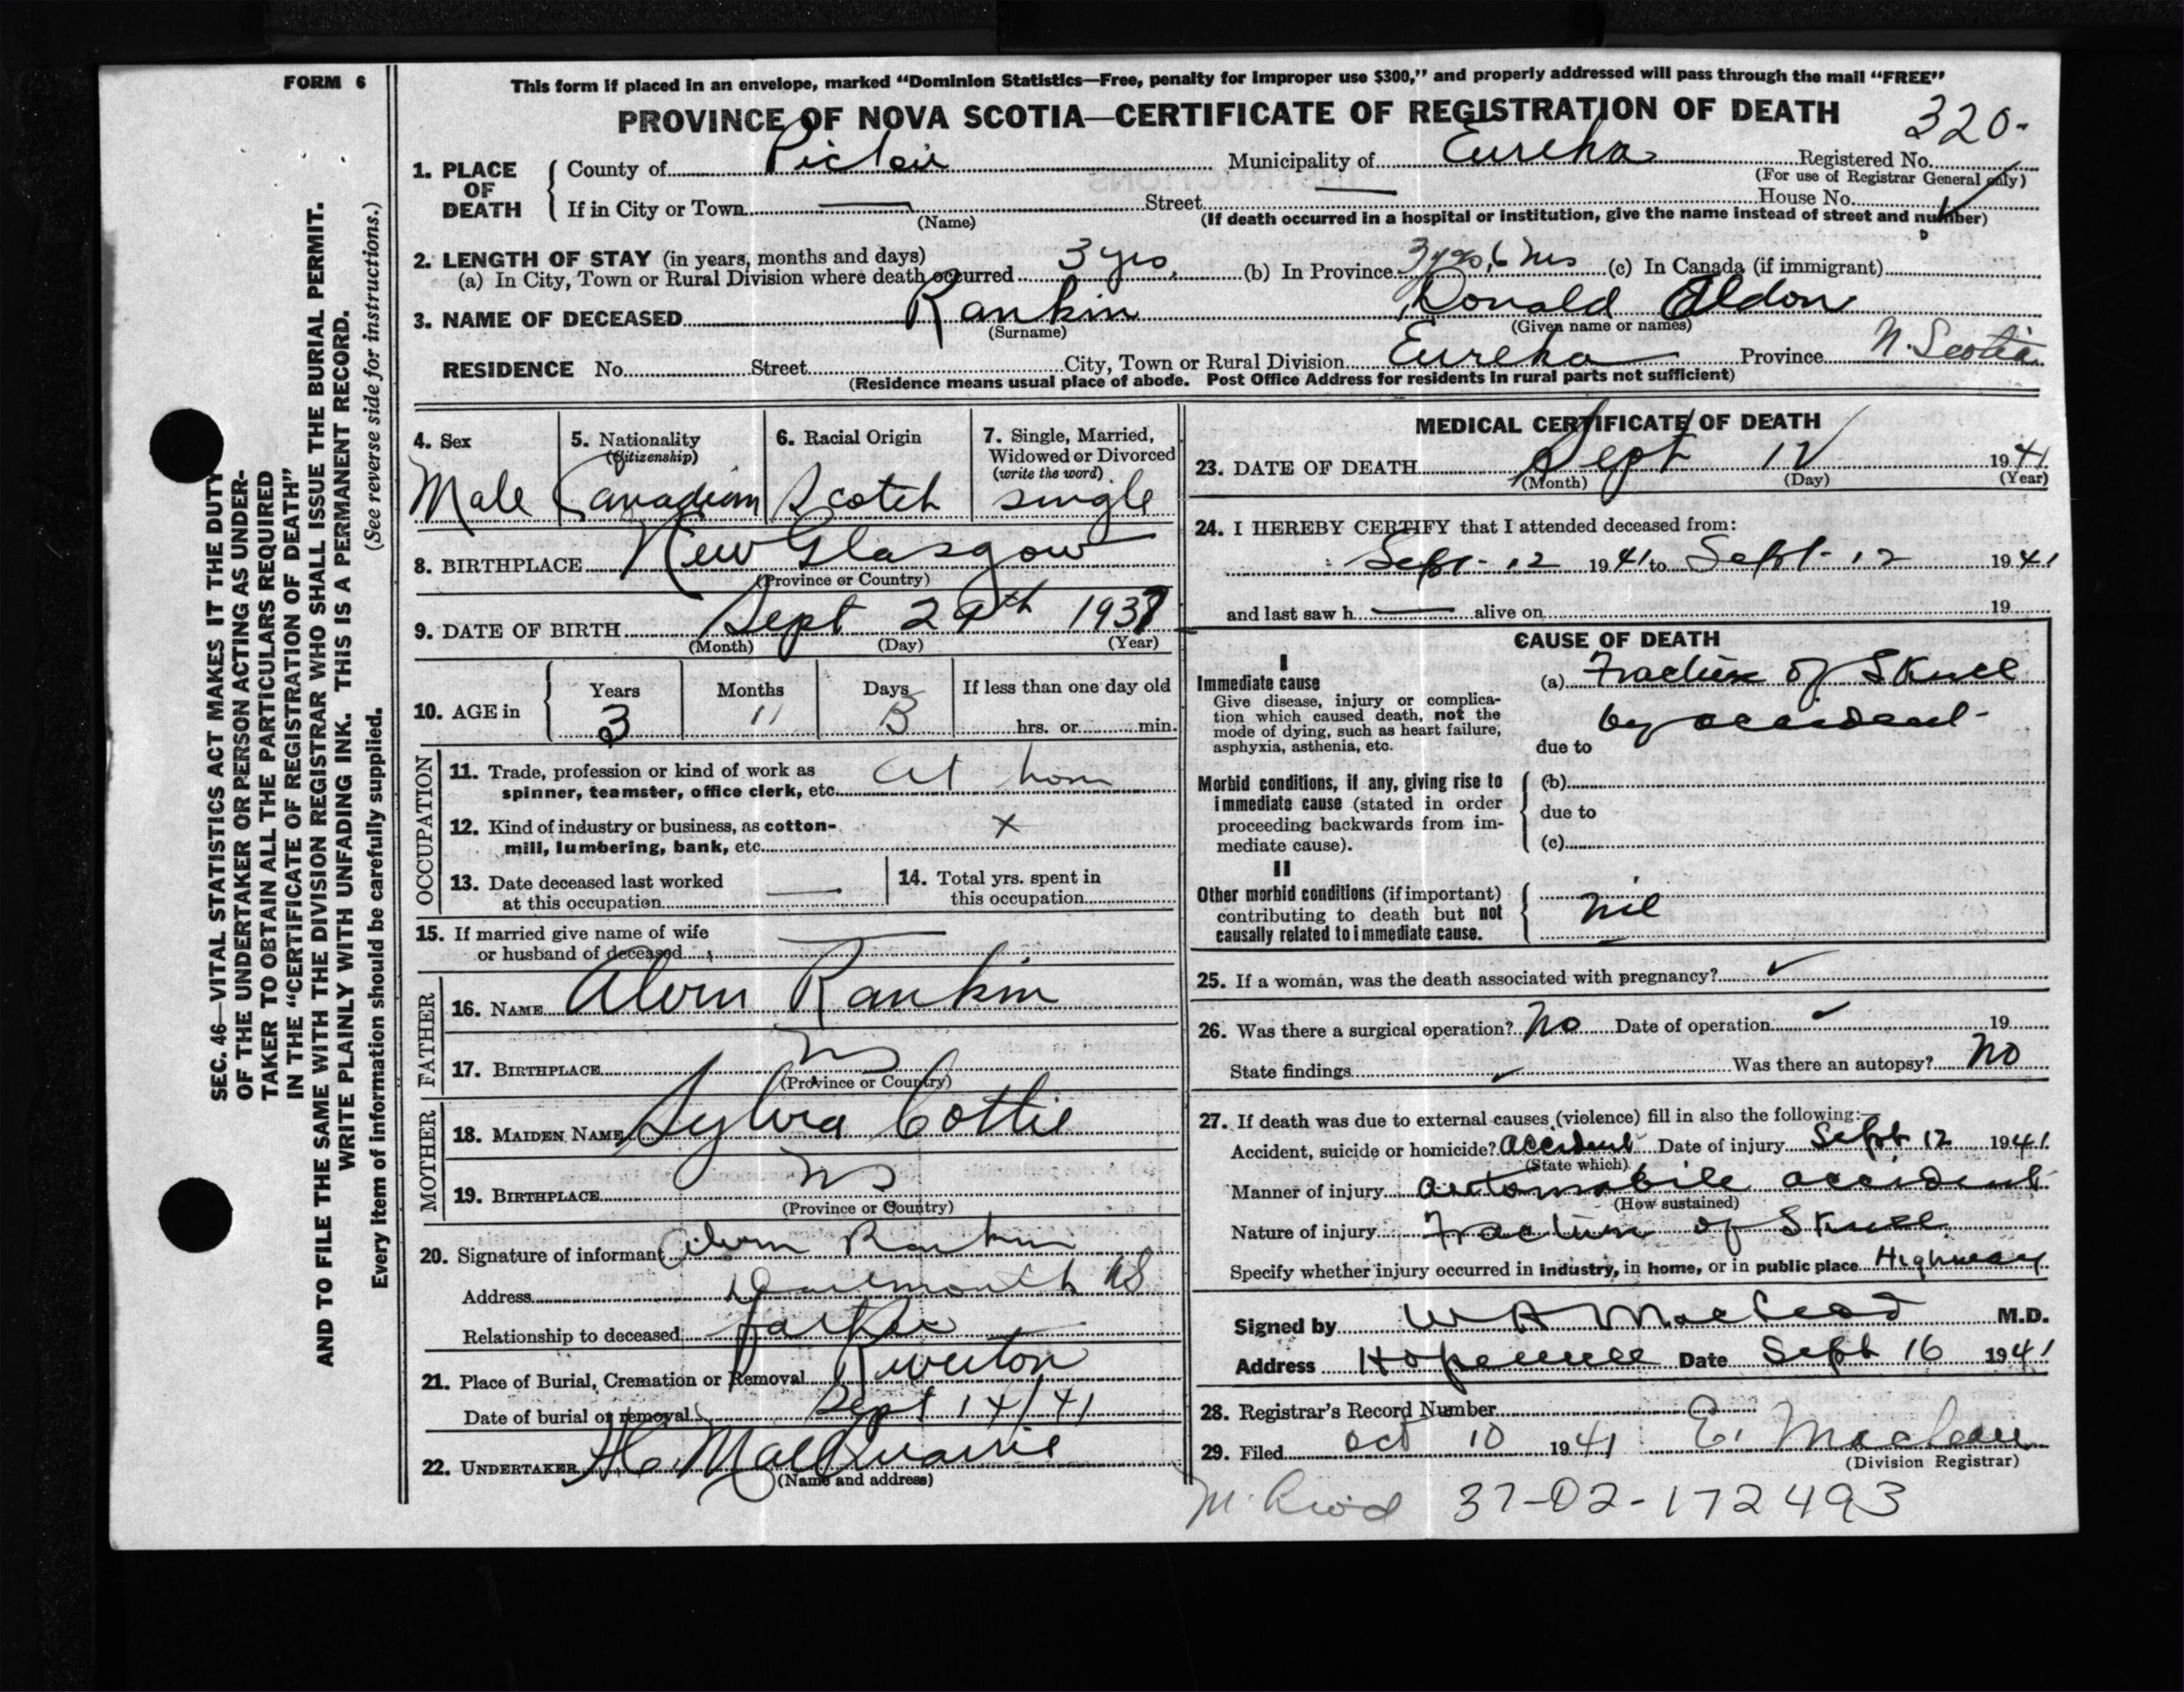 FORM 6
This form if placed in an envelope, marked “Dominion Statistics—Free, penalty for improper use $300,” and properly addressed will pass through the mail “FREE”
PROVINCE OF NOVA SCOTIA—CERTIFICATE OF REGISTRATION OF DEATH
320-
1. PLACE OF DEATH
County of Pictou Municipality of Eureka Registered No.
(For use of Registrar General only)
If in City or Town — Street — House No.
(Name) (If death occurred in a hospital or institution, give the name instead of street and number)
2. LENGTH OF STAY (in years, months and days)
(a) In City, Town or Rural Division where death occurred 3 yrs. (b) In Province 3 yrs, 6 ms (c) In Canada (if immigrant)
3. NAME OF DECEASED Rankin Donald Aldon
(Surname) (Given name or names)
RESIDENCE No. Street City, Town or Rural Division Eureka Province N. Scotia
(Residence means usual place of abode. Post Office Address for residents in rural parts not sufficient)
4. Sex
Male
5. Nationality
(Citizenship)
Canadian
6. Racial Origin
Scotch
7. Single, Married,
Widowed or Divorced
(write the word)
single
8. BIRTHPLACE New Glasgow
(Province or Country)
9. DATE OF BIRTH Sept 29th 1937
(Month) (Day) (Year)
10. AGE in
Years Months Days If less than one day old
3 11 13 hrs. or min.
OCCUPATION
11. Trade, profession or kind of work as
spinner, teamster, office clerk, etc. at hom
12. Kind of industry or business, as cotton-
mill, lumbering, bank, etc. x
13. Date deceased last worked
at this occupation —
14. Total yrs. spent in
this occupation
15. If married give name of wife
or husband of deceased —
FATHER
16. NAME Alvin Rankin
17. BIRTHPLACE NS
(Province or Country)
MOTHER
18. MAIDEN NAME Sylvia Cottie
19. BIRTHPLACE NS
(Province or Country)
20. Signature of informant Alvin Rankin
Address Dartmouth NS
Relationship to deceased father
21. Place of Burial, Cremation or Removal Riverton
Date of burial or removal Sept 14/41
22. UNDERTAKER H.C. MacQuarrie
(Name and address)
MEDICAL CERTIFICATE OF DEATH
23. DATE OF DEATH Sept 12 1941
(Month) (Day) (Year)
24. I HEREBY CERTIFY that I attended deceased from:
Sept - 12 1941 to Sept - 12 1941
and last saw h — alive on 19
CAUSE OF DEATH
I
Immediate cause
Give disease, injury or complica-
tion which caused death, not the
mode of dying, such as heart failure,
asphyxia, asthenia, etc.
(a) Fracture of Skull
by accident-
due to
Morbid conditions, if any, giving rise to
immediate cause (stated in order
proceeding backwards from im-
mediate cause).
(b)
due to
(c)
II
Other morbid conditions (if important)
contributing to death but not
causally related to immediate cause.
nil
25. If a woman, was the death associated with pregnancy?
26. Was there a surgical operation? No Date of operation 19
State findings Was there an autopsy? No
27. If death was due to external causes (violence) fill in also the following:—
Accident, suicide or homicide? Accident Date of injury Sept 12 1941
(State which)
Manner of injury automobile accident
(How sustained)
Nature of injury Fracture of Skull
Specify whether injury occurred in industry, in home, or in public place Highway
Signed by W A MacLeod M.D.
Address Hopewell Date Sept 16 1941
28. Registrar's Record Number
29. Filed Oct 10 1941 E. Maclean
(Division Registrar)
37-02-172493
SEC. 46—VITAL STATISTICS ACT MAKES IT THE DUTY
OF THE UNDERTAKER OR PERSON ACTING AS UNDER-
TAKER TO OBTAIN ALL THE PARTICULARS REQUIRED
IN THE “CERTIFICATE OF REGISTRATION OF DEATH”
AND TO FILE THE SAME WITH THE DIVISION REGISTRAR WHO SHALL ISSUE THE BURIAL PERMIT.
WRITE PLAINLY WITH UNFADING INK. THIS IS A PERMANENT RECORD.
Every item of information should be carefully supplied. (See reverse side for instructions.)